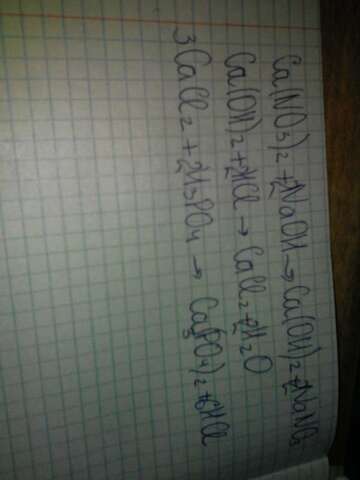 Ca(NO3)2 + 2NaOH → Ca(OH)2 + 2NaNO3
Ca(OH)2 + 2HCl → CaCl2 + 2H2O
3CaCl2 + 2H3PO4 → Ca3(PO4)2 + 6HCl